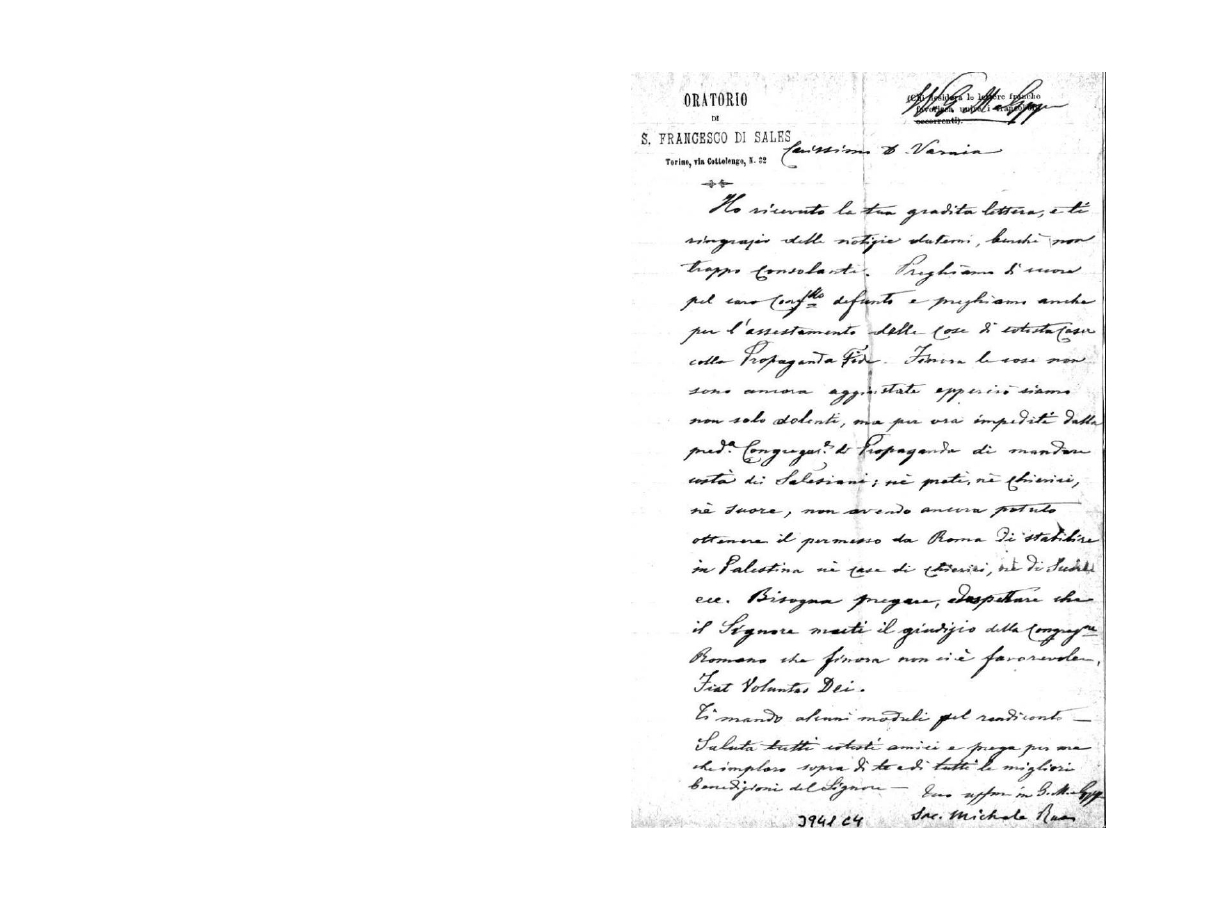 ORATORIO
DI
S. FRANCESCO DI SALES
Torino, via Cottolengo, N. 32
(Chi desidera le lettere franche
occorrenti).
Carissimo D. Varnia
Ho ricevuto la tua gradita lettera, e ti
ringrazio delle notizie datemi, benchè non
troppo consolanti. Preghiamo di cuore
pel caro Conf.llo defunto e preghiamo anche
per l'assestamento delle cose di cotesta Casa
colla Propaganda Fide. Finora le cose non
sono ancora aggiustate epperciò siamo
non solo dolenti, ma per ora impediti dalla
pred.a Congregaz.e di Propaganda di mandare
costà dei Salesiani; nè preti, nè chierici,
nè suore, non avendo ancora potuto
ottenere il permesso da Roma di stabilire
in Palestina nè case di chierici, nè di Suore
ecc. Bisogna pregare, ed aspettare che
il Signore muti il giudizio della Congreg.ne
Romana che finora non ci è favorevole.
Fiat Voluntas Dei.
Ti mando alcuni moduli pel rendiconto —
Saluta tutti cotesti amici e prega per me
che imploro sopra di te e di tutti le migliori
benedizioni del Signore — Tuo aff.mo in G. M. e Gpp
Sac. Michele Rua
3941 C4